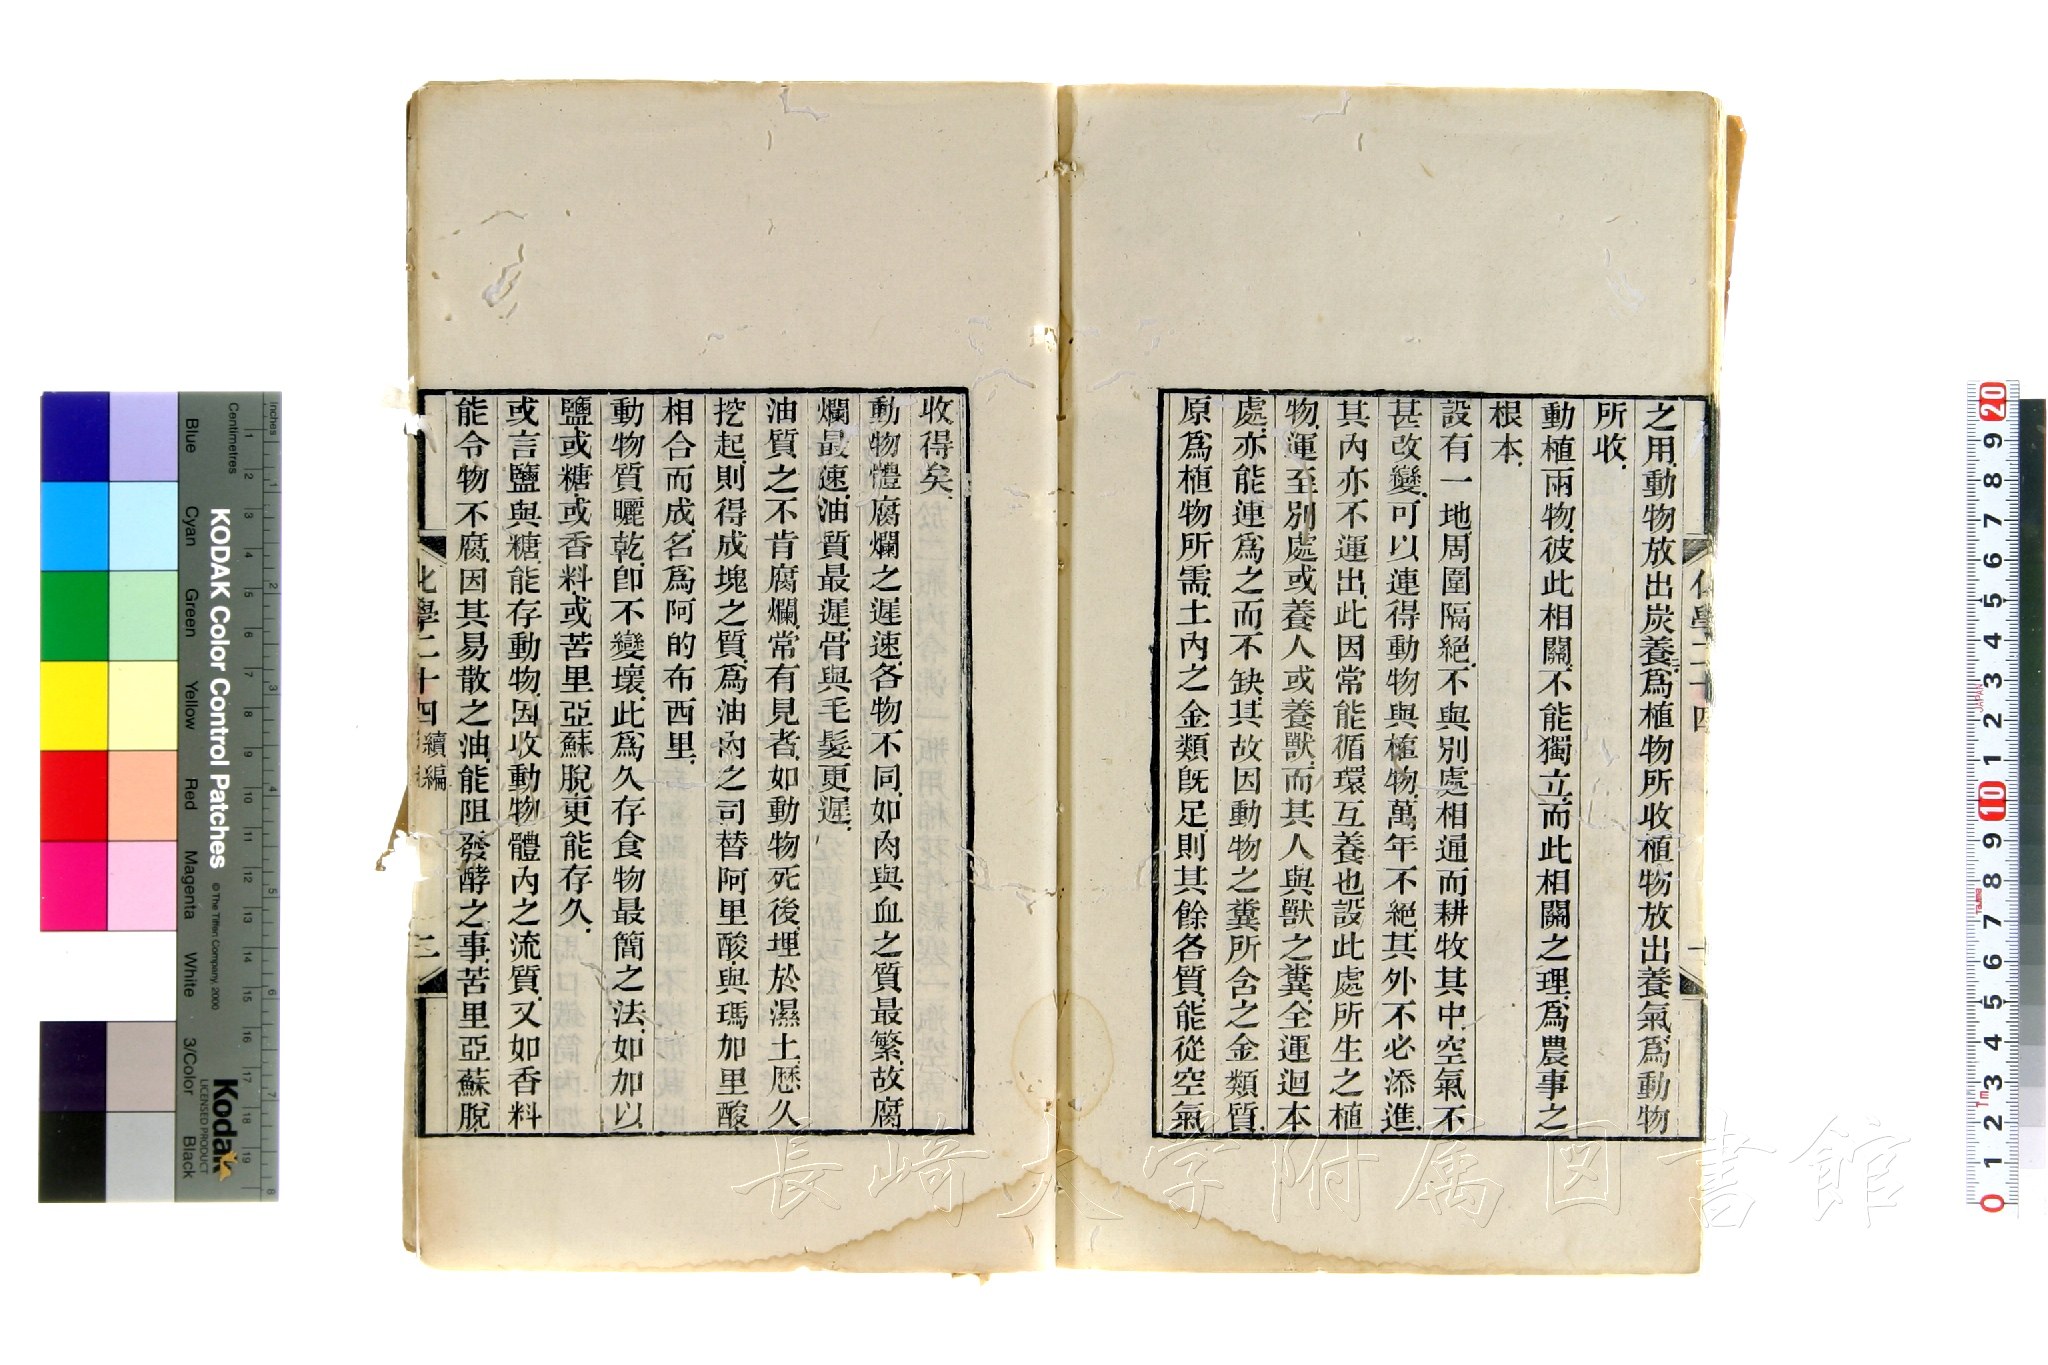 之用動物放出炭養二爲植物所收植物放出養氣爲動物
所收.
動植兩物.彼此相關.不能獨立.而此相關之理.爲農事之
根本.
設有一地.周圍隔絕.不與別處相通而耕牧其中.空氣不
甚改變.可以連得動物與植物.萬年不絕.其外不必添進.
其內亦不運出.此因常能循環互養也.設此處所生之植
物.運至別處.或養人或養獸.而其人與獸之糞.全運迴本
處.亦能連爲之而不缺.其故因動物之糞所含之金類質.
原爲植物所需.土內之金類旣足.則其餘各質.能從空氣
收得矣.
動物體腐爛之遲速.各物不同.如肉與血之質最繁.故腐
爛最速.油質最遲.骨與毛髮更遲.
油質之不肯腐爛.常有見者.如動物死後.埋於濕土.歷久
挖起.則得成塊之質.爲油內之司替阿里酸.與瑪加里酸.
相合而成.名爲阿的布西里.
動物質曬乾.卽不變壞.此爲久存食物最簡之法.如加以
鹽或糖或香料或苦里亞蘇脫.更能存久.
或言鹽與糖.能存動物.因收動物體內之流質.又如香料
能令物不腐.因其易散之油.能阻發酵之事.苦里亞蘇脫.
化學二十四 續編
KODAK Color Control Patches
© The Tiffen Company, 2000
Kodak
LICENSED PRODUCT
Inches
Centimetres
Blue Cyan Green Yellow Red Magenta White 3/Color Black
1 2 3 4 5 6 7 8 9 10 11 12 13 14 15 16 17 18 19
20 9 8 7 6 5 4 3 2 1 10 9 8 7 6 5 4 3 2 1 0
長崎大学附属図書館